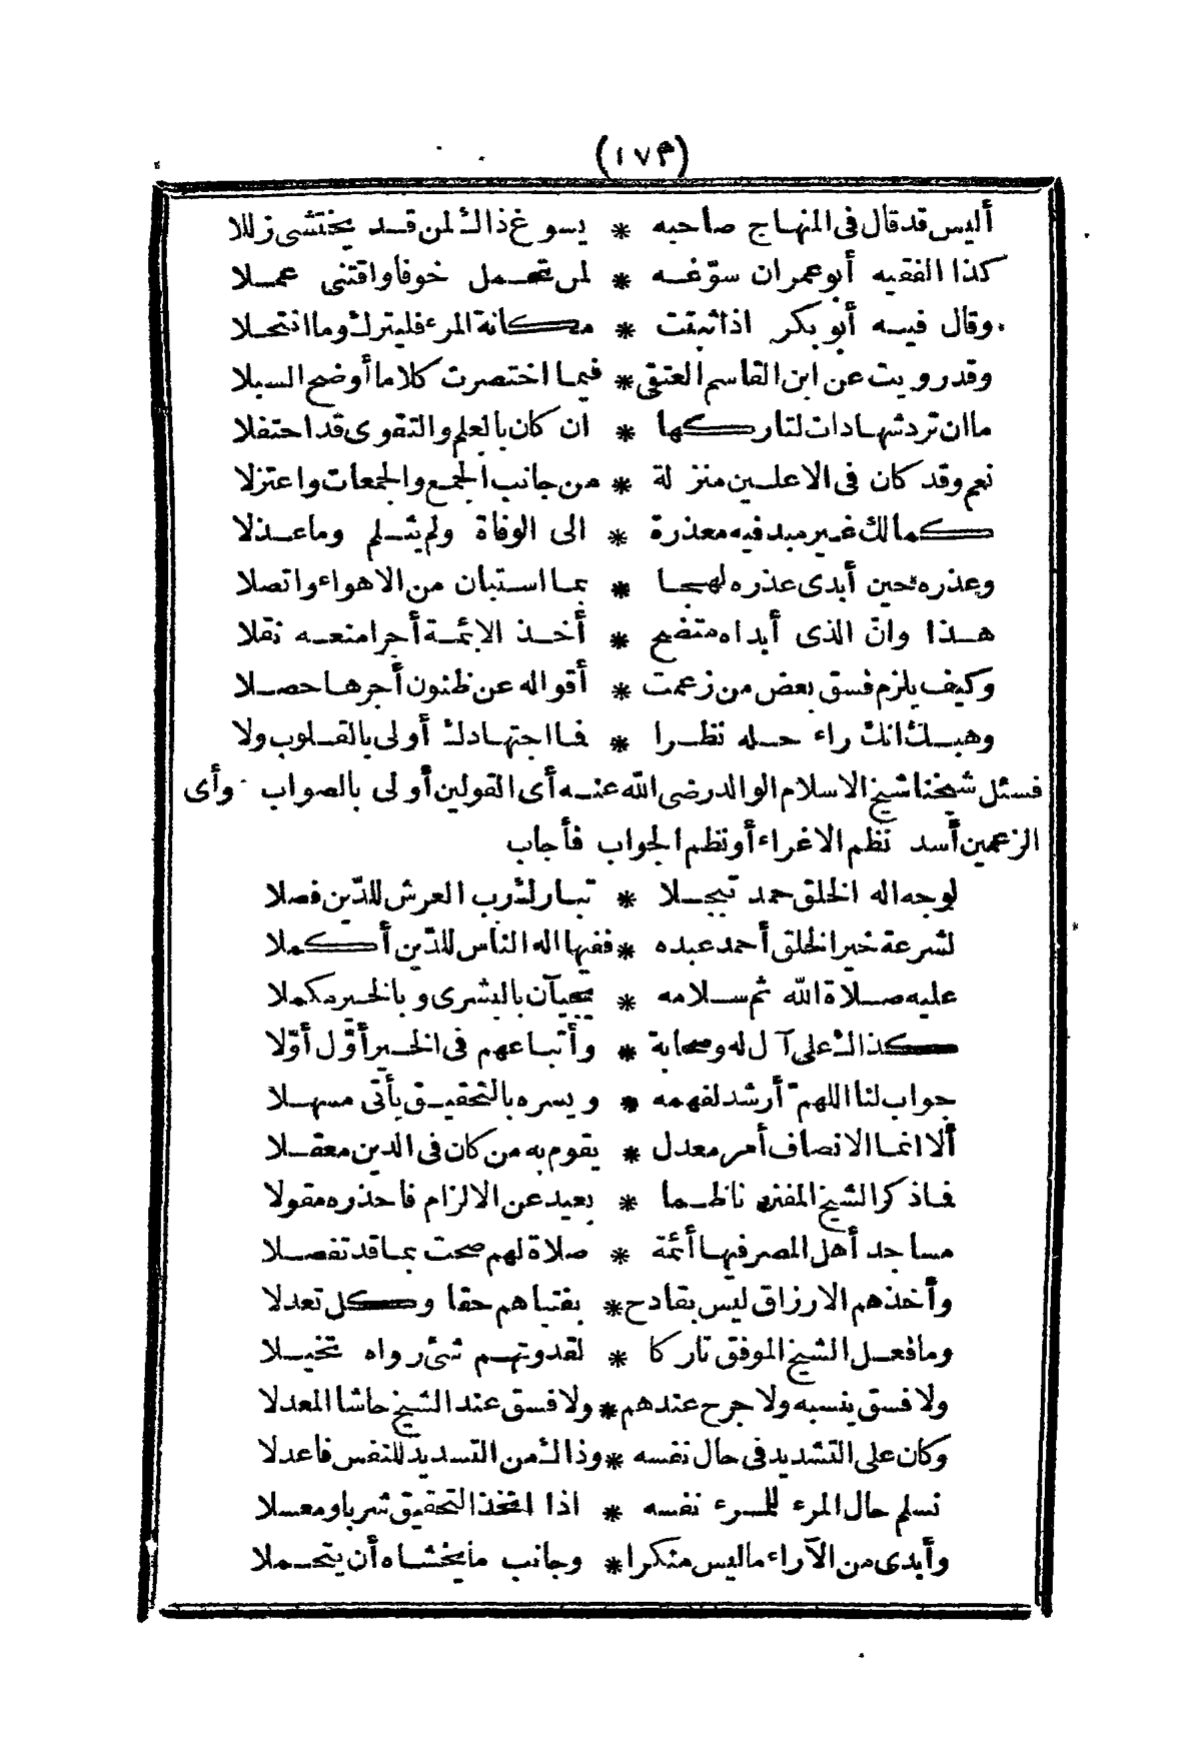 (١٧٣)
أليس قد قال فى المنهاج صاحبه * يسوغ ذاك لمن قد يختشى زللا
كذا الفقيه أبو عمران سوّغه * لمن تحمل خوفا واقتنى عملا
وقال فيه أبو بكر اذا ثبتت * مكانة المرء فليترك وما انتحلا
وقد رويت عن ابن القاسم العتقى * فيما اختصرت كلاما أوضح السبلا
ما ان ترد شهادات لتاركها * ان كان بالعلم والتقوى قد احتفلا
نعم وقد كان فى الاعلين منزلة * من جانب الجمع والجمعات واعتزلا
كمالك غير مبد فيه معذرة * الى الوفاة ولم يثلم وما عذلا
وعذره حين أبدى عذره لهجا * بما استبان من الاهواء واتصلا
هذا وانّ الذى أبداه متضح * أخذ الائمة أجرا منعه نقلا
وكيف يلزم فسق بعض من زعمت * أقواله عن ظنون أجرها حصلا
وهبك انك راء حله نظرا * فما اجتهادك أولى بالقلوب ولا
فسئل شيخنا شيخ الاسلام الوالد رضى الله عنه أى القولين أولى بالصواب وأى
الزعمين أسد نظم الاغراء أو نظم الجواب فأجاب
لوجه اله الخلق حمد تبجلا * تبارك رب العرش للدّين فصلا
لشرعة خير الخلق أحمد عبده * ففيها اله الناس للدّين أكملا
عليه صلاة الله ثم سلامه * يجيآن بالبشرى وبالخير مكملا
كذاك على آل له وصحابة * وأتباعهم فى الخير أوّل أوّلا
جواب لنا اللهم أرشد لفهمه * ويسره بالتحقيق يأتى مسهلا
ألا انما الانصاف أمر معدل * يقوم به من كان فى الدين معقلا
فما ذكر الشيخ المفند ناظما * بعيد عن الالزام فاحذره مقولا
مساجد أهل المصر فيها أئمة * صلاة لهم صحت بما قد تفصلا
وأخذهم الارزاق ليس بقادح * بفتياهم حقا وكل تعدلا
وما فعل الشيخ الموفق تاركا * لقدوتهم شئ رواه تخيلا
ولا فسق ينسبه ولا جرح عندهم * ولا فسق عند الشيخ حاشا المعدلا
وكان على التشديد فى حال نفسه * وذاك من التسديد للنفس فاعدلا
نسلم حال المرء للمرء نفسه * اذا اتخذ التحقيق شربا ومعسلا
وأبدى من الآراء ما ليس منكرا * وجانب ما يخشاه أن يتحملا